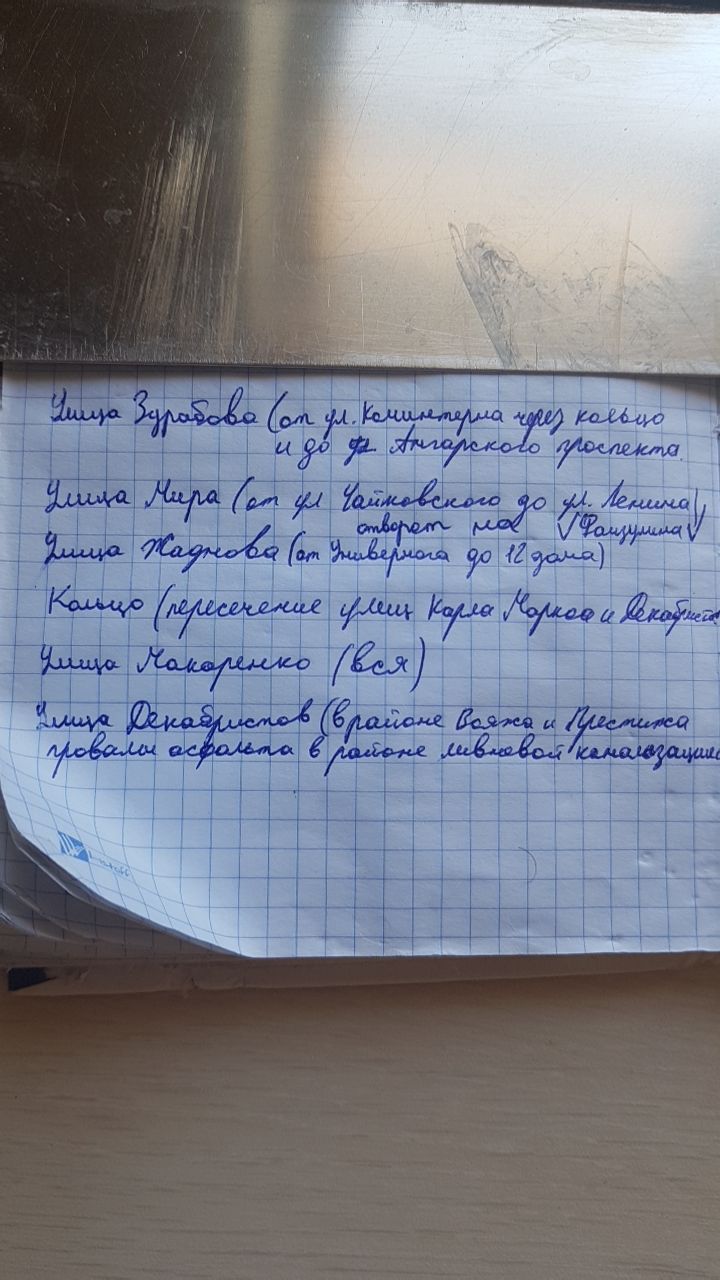 Улица Зурабова (от ул. Коминтерна через кольцо
и до Ангарского проспекта
Улица Мира (от ул Чайковского до ул. Ленина)
отворот на Файзулина
Улица Жаднова (от Универмага до 12 дома)
Кольцо (пересечение улиц Карла Маркса и Декабристо
Улица Макаренко (вся)
Улица Декабристов (в районе Вояжа и Престижа
провалы асфальта в районе ливневой канализации